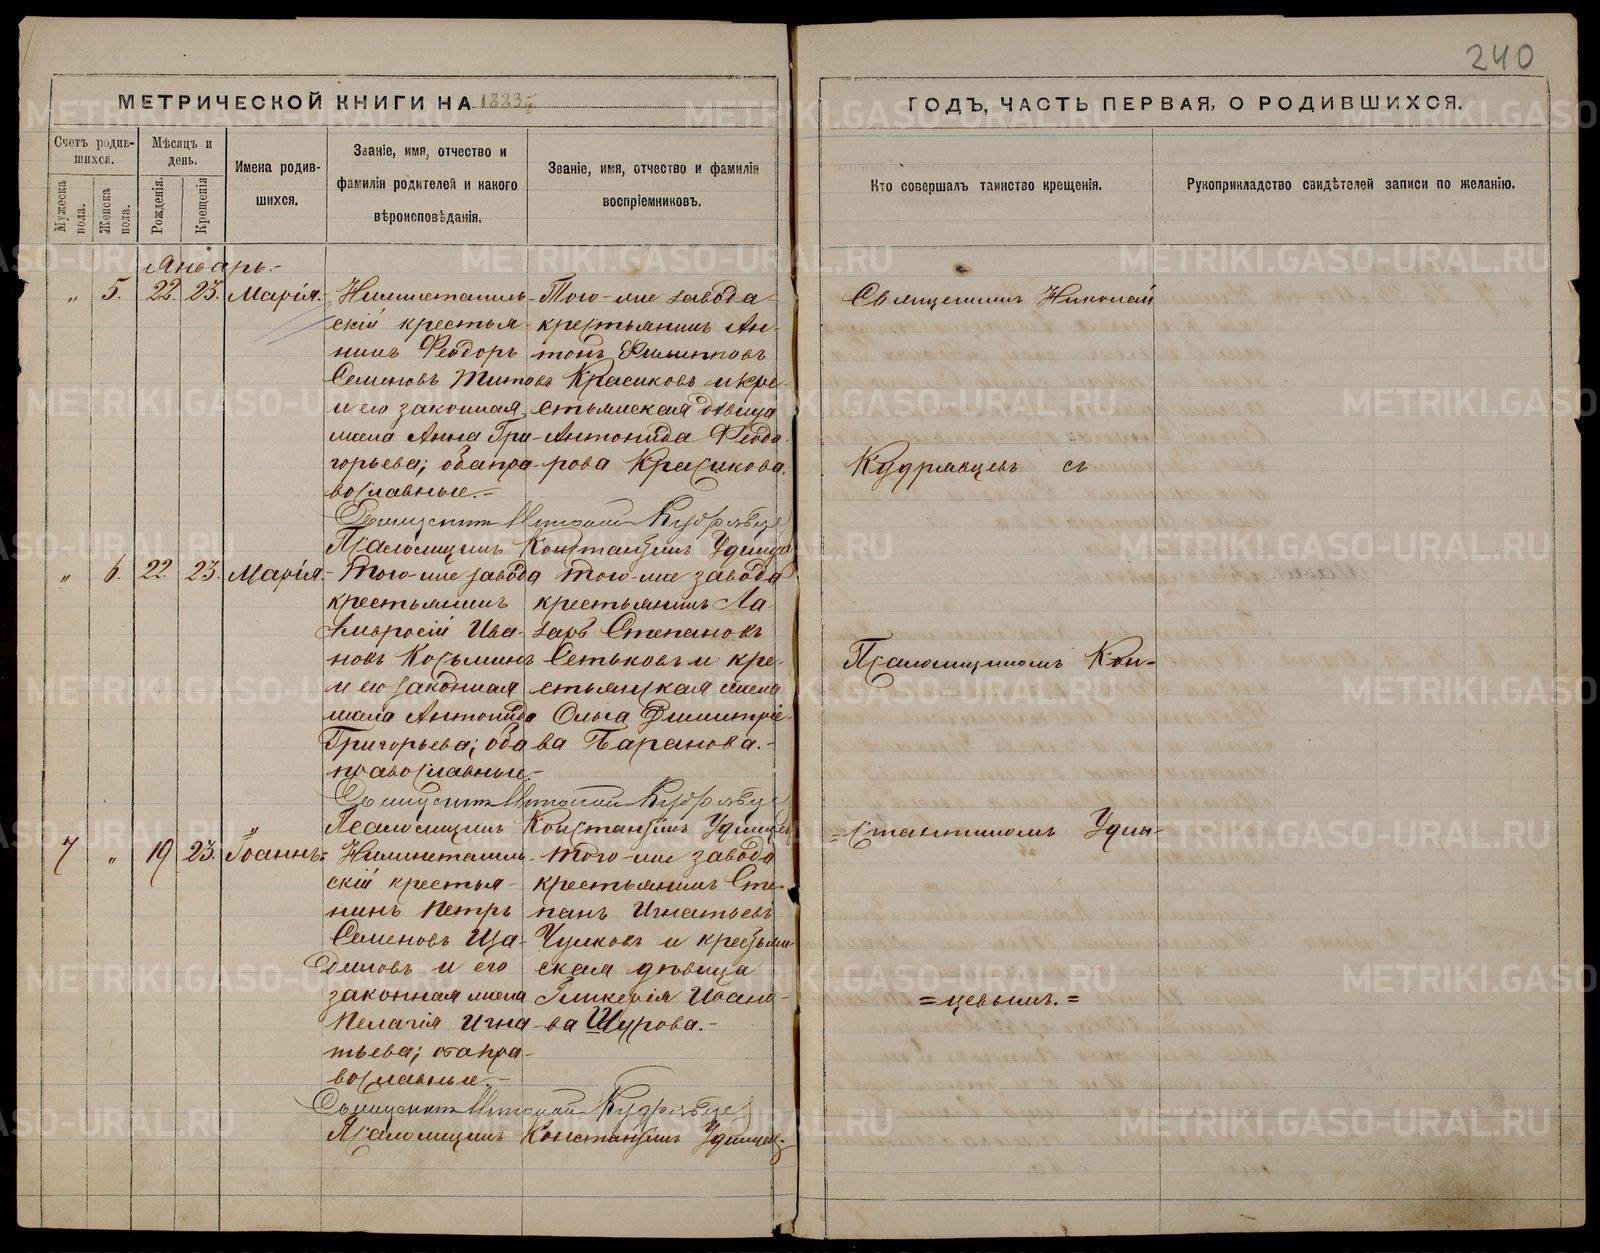 240
МЕТРИЧЕСКОЙ КНИГИ НА
ГОДЪ, ЧАСТЬ ПЕРВАЯ, О РОДИВШИХСЯ.
Счетъ родив-
шихся.
Мужеска
пола.
Женска
пола.
Мѣсяцъ и
день.
Рожденія.
Крещенія
Имена родив-
шихся.
Званіе, имя, отчество и
фамилія родителей и какого
вѣроисповѣданія.
Званіе, имя, отчество и фамилія
воспріемниковъ.
Кто совершалъ таинство крещенія.
Рукоприкладство свидѣтелей записи по желанію.
Январь.-
„ 5. 22. 23. Марія.-
Нижнетагиль-
скій крестья-
нинъ Ѳеодоръ
Семеновъ Титовъ
и его законная
жена Анна Гри-
горьева; обапра-
вославные.-
Того-же завода
крестьянинъ Ан-
тонъ Филипповъ
Красиковъ и кре-
стьянская дѣвица
Антонида Ѳеодо-
рова Красикова.
Священникъ Николай Кудрявцев
Псаломщикъ Константинъ Удинцов
„ 6. 22. 23. Марія.-
Того-же завода
крестьянинъ
Амвросій Ива-
новъ Козьминъ
и его законная
жена Антонида
Григорьева; оба
православные.-
того-же завода
крестьянинъ Ла-
зарь Степановъ
Сетьковъ и кре-
стьянская жена
Ольга Димитріе-
ва Баранова.-
Священникъ Николай Кудрявцев
Псаломщикъ Константинъ Удинцев
7 „ 19 23. Іоаннъ.
Нижнетагиль-
скій крестья-
нинъ Петръ
Семеновъ Ща-
диловъ и его
законная жена
Пелагія Игна-
тьева; оба пра-
вославные.-
того-же завода
крестьянинъ Сте-
панъ Игнатьевъ
Чулковъ и крестьян-
ская дѣвица
Гликерія Ивано-
ва Шурова.-
Священникъ Николай Кудрявцев
Псаломщикъ Константинъ Удинцев
Священникъ Николай
Кудрявцевъ съ
Псаломщикомъ Кон-
=стантиномъ Удин-
=цевымъ.=
METRIKI.GASO-URAL.RU